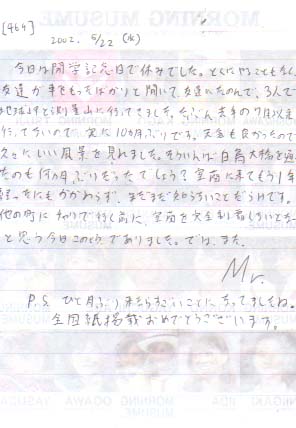 [464]
2002. 5/22 (水)
今日は開学記念日で休みでした。とくにやることもなく、
友達が車をもったばかりと聞いて、友達にたのんで、3人で
地球岬と測量山に行ってきました。たぶん去年の7月以来
行ってないので、実に10ヶ月ぶりです。天気も良かったので
久々にいい風景を見れました。そういえば白鳥大橋を通っ
たのも何ヶ月ぶりだったでしょう?室蘭に来てもう1年
経ったにもかかわらず、まだまだ知らないことだらけです。
他の町にチャリで行く前に、室蘭を完全制覇しないとな〜
と思う今日このごろでありました。では、また。
Mr.
P.S. ひと月ぶりに来たらすごいことになってましたね。
全国紙掲載おめでとうございます。
MORNING MUSUME
IIDA
MORNING MUSUME
OGAWA
YASUDA